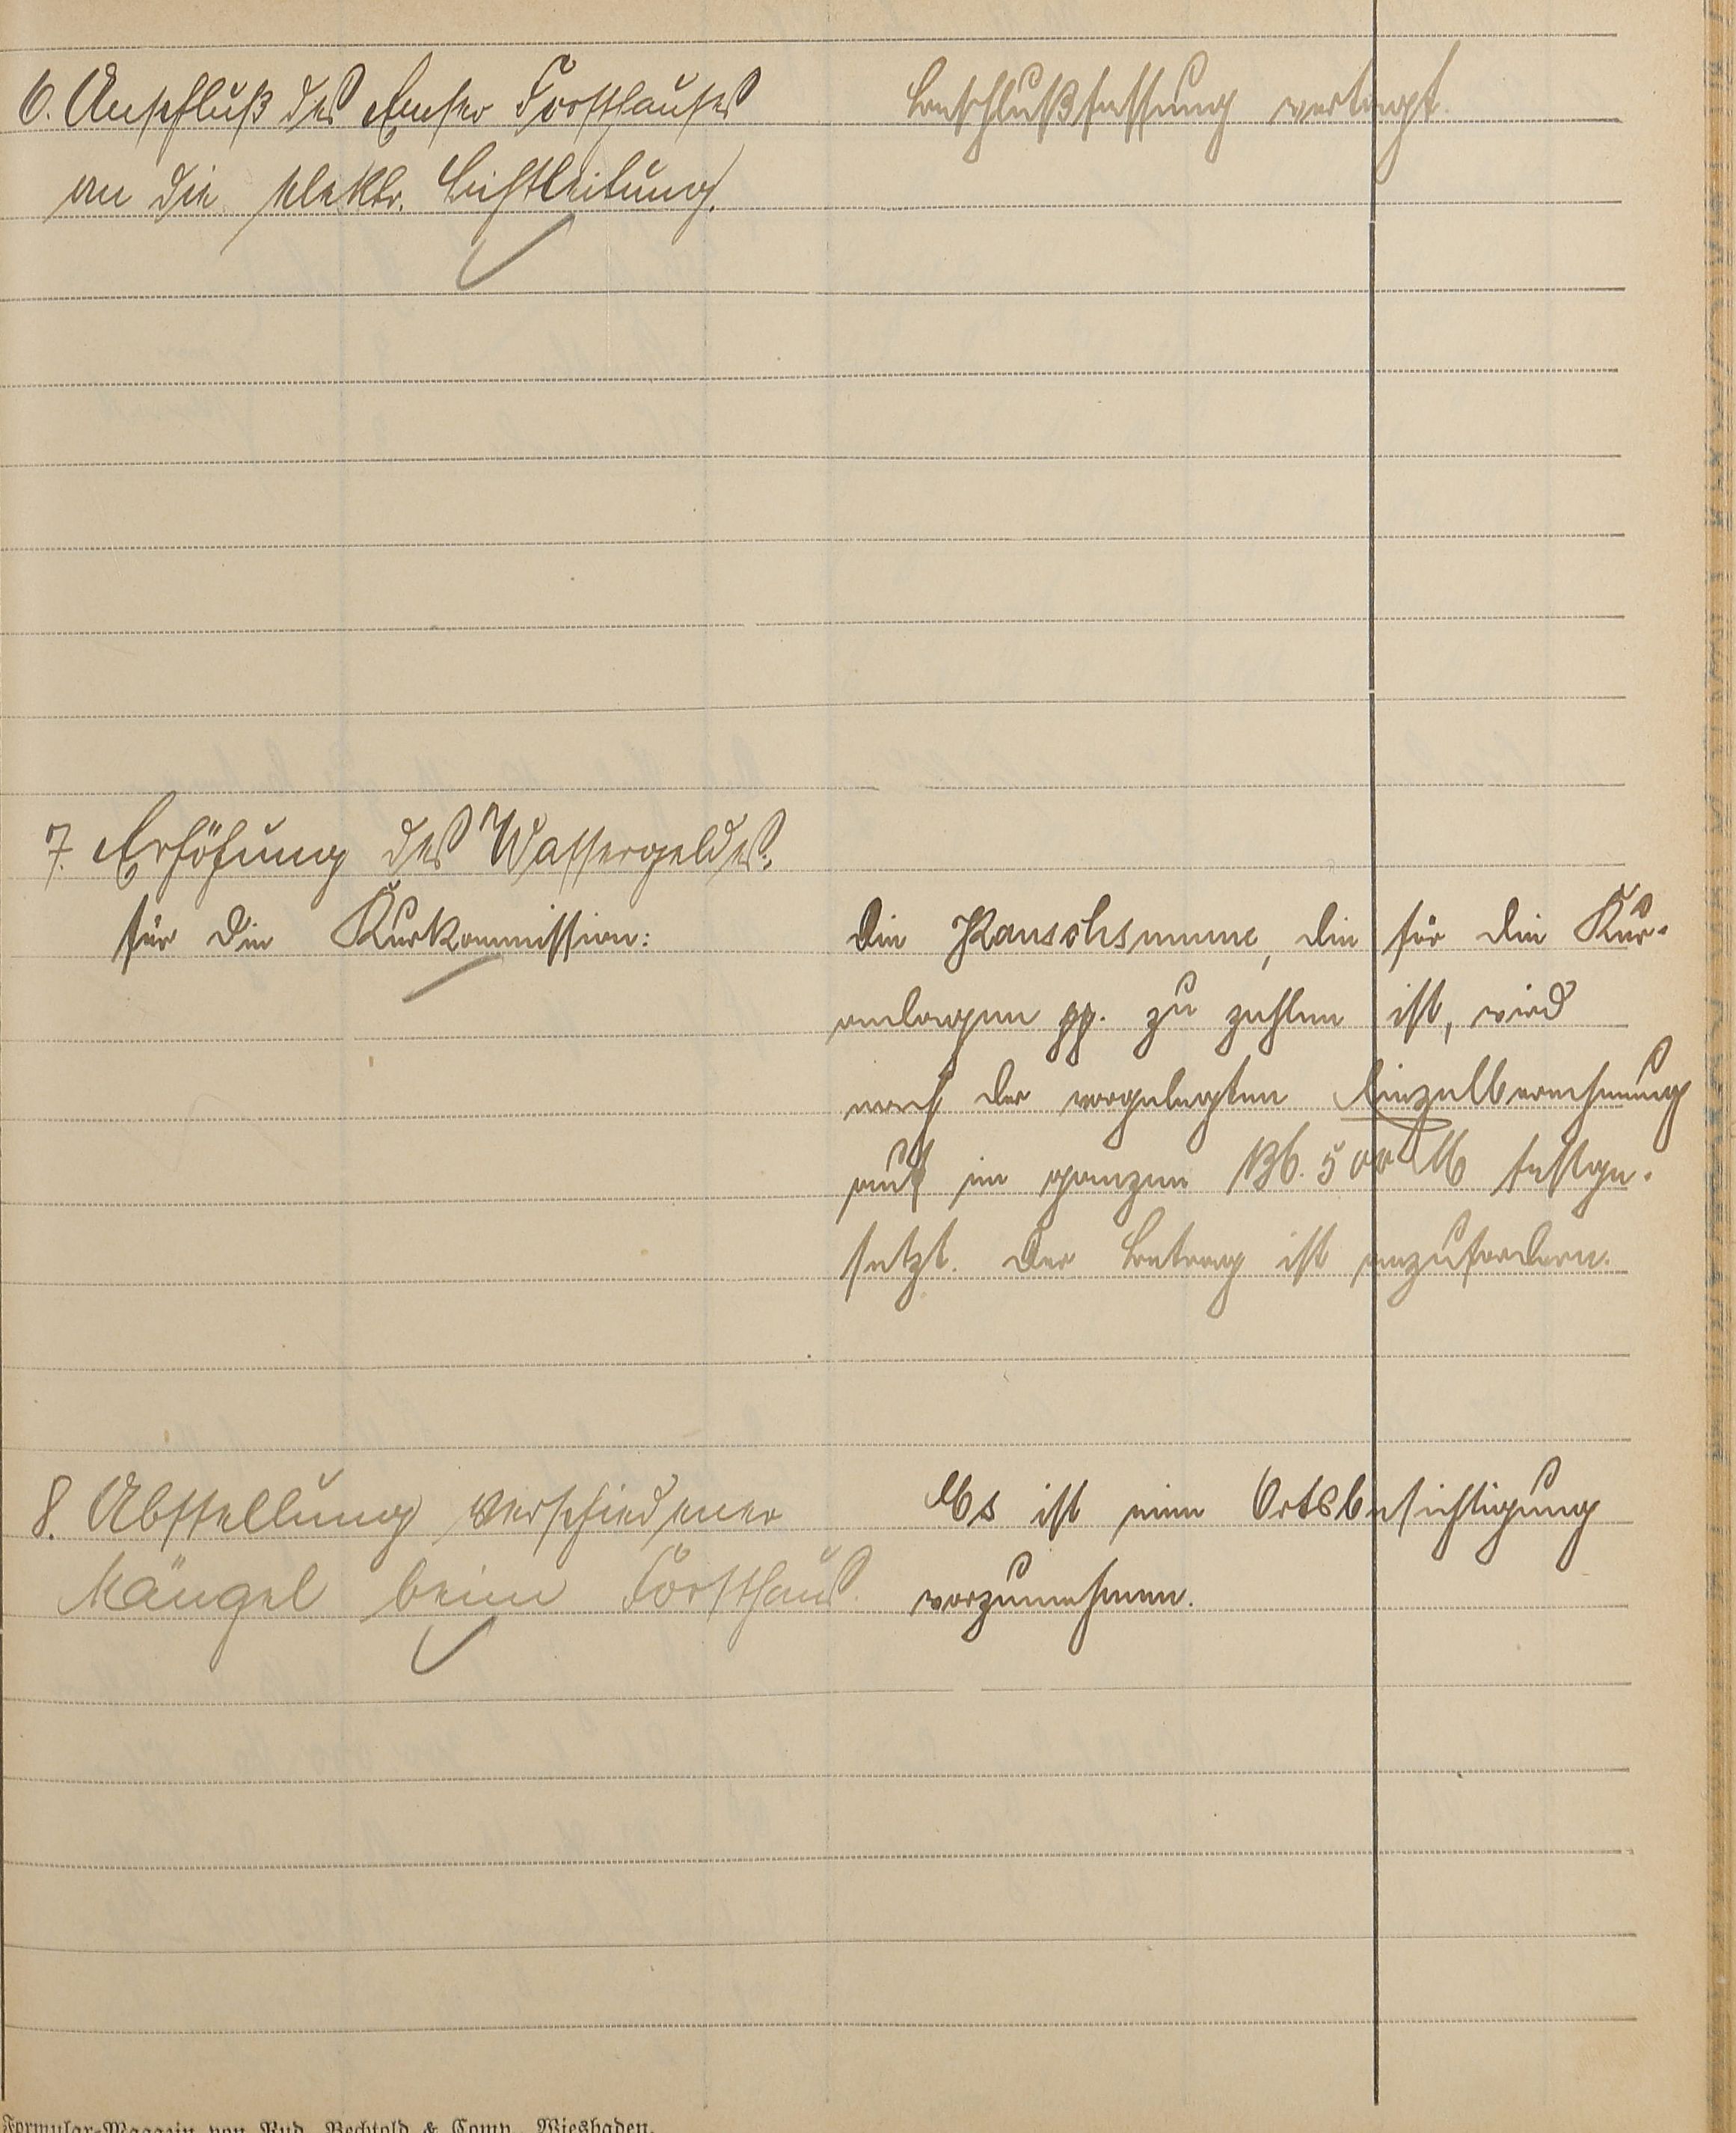 6. Anschluß des Emser Forsthauses
an die elektr. Lichtleitung.
Beschlußfassung vertagt.
7. Erhöhung des Wassergeldes.
für die Kurkommission:
Die Pauschsumme, die für die Kur-
anlagen pp. zu zahlen ist, wird
nach der vorgelegten Einzelberechnung
auf im ganzen 500 M festge-
setzt. Der Betrag ist anzufordern.
8. Abstellung verschiedener
Mängel beim Forsthaus.
Es ist eine Ortsbesichtigung
vorzunehmen.
Formular-Magazin von Rud. Bechtold & Comp., Wiesbaden.